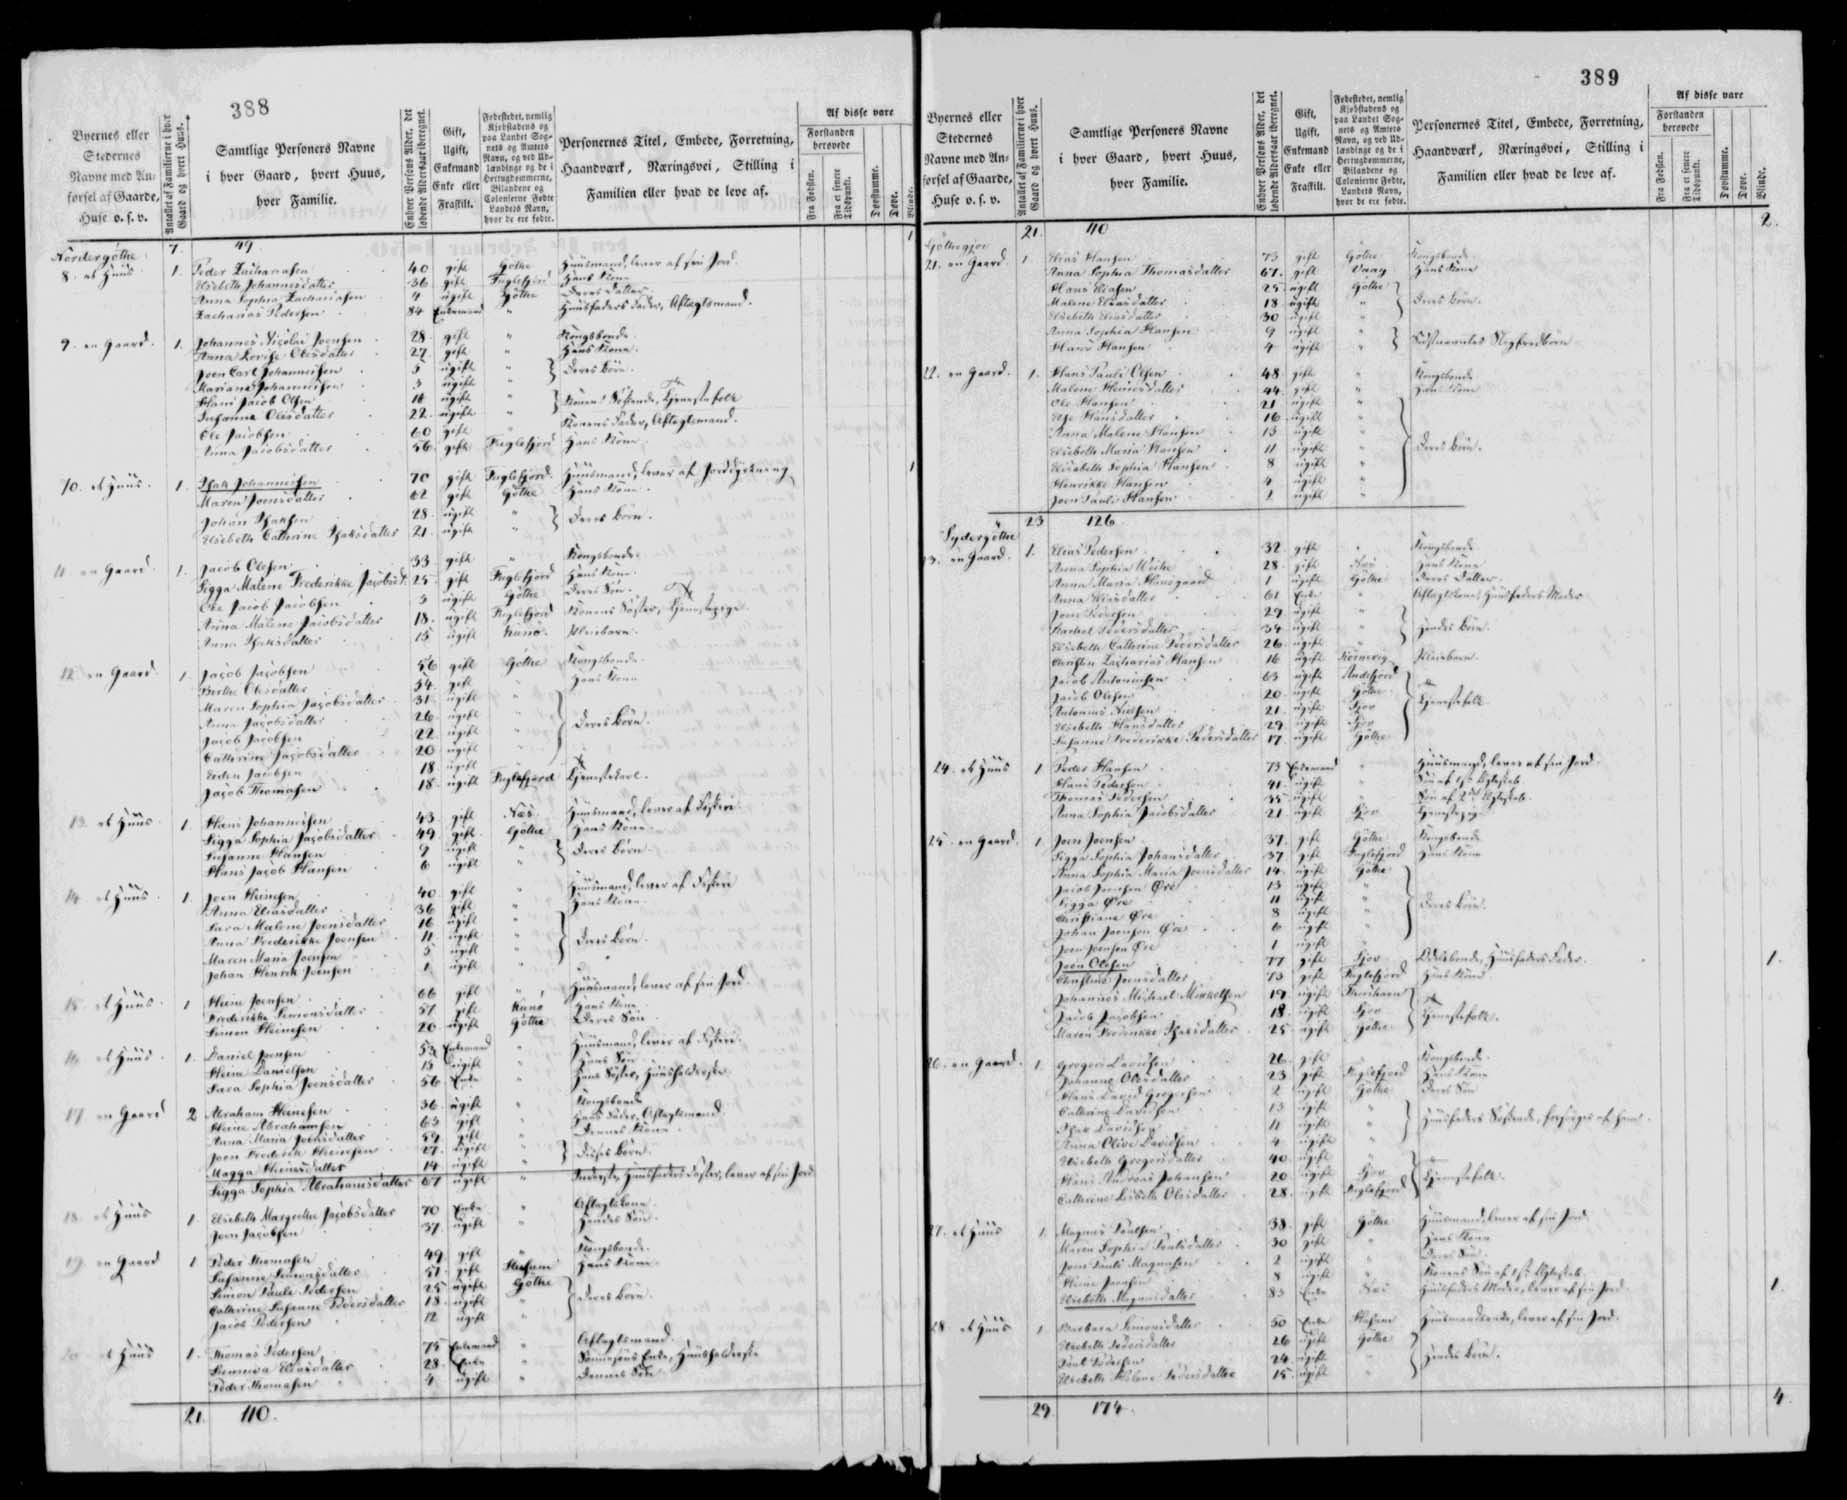 388
Byernes eller Stedernes Navne med Anførsel af Gaarde, Huse o. s. v.
Antallet af Familierne i hver Gaard og hvert Huus.
Samtlige Personers Navne i hver Gaard, hvert Huus, hver Familie.
Enhver Persons Alder, det løbende Aldersaar iberegnet.
Gift, Ugift, Enkemand Enke eller Fraskilt.
Fødestedet, nemlig Kjøbstadens og paa Landet Sognets og Amtets Navn, og ved Udlændinge og de i Hertugdømmerne, Bilandene og Colonierne Fødte Landets Navn, hvor de ere fødte.
Personernes Titel, Embede, Forretning, Haandværk, Næringsvei, Stilling i Familien eller hvad de leve af.
Af disse vare
Forstanden berøvede
Fra Fødslen.
Fra et senere Tidspunkt.
Døvstumme.
Døve.
Blinde.
7. 49. 1
Nordergöthe
8. et Huus 1. Peder Zachariasen 40 gift Göthe Huusmand, lever af sin Jord
Elsebeth Johannesdatter 36 gift Fuglefjord Hans Kone
Anna Sophia Zachariasen 4 ugift Göthe Deres Datter
Zacharias Pedersen 84 Enkemand " Huusfaders Fader, Aftægtsmand
9. en Gaard 1. Johannes Nicolai Joensen 28 gift " Kongsbonde
Anna Lovise Olesdatter 27 gift " Hans Kone
Joen Carl Johannessen 5 ugift " Deres Börn
Mariane Johannessen 3 ugift "
Hans Jacob Olsen ugift " Konens Södskende, Tjenestefolk
Susanna Olesdatter 22 ugift "
Ole Jacobsen 60 gift " Konens Fader, Aftægtsmand
Anna Jacobsdatter 56 gift Fuglefjord Hans Kone
10. et Huus 1. Isak Johannessen 70 gift Fuglefjord Huusmand, lever af Jorddyrkning 1
Maren Joensdatter 62 gift Göthe Hans Kone
Johan Isaksen 28 ugift " Deres Börn
Elsebeth Cathrine Isaksdatter 21 ugift "
11. en Gaard 1. Jacob Olesen 33 gift " Kongsbonde
Sigga Malene Frederikke Jacobsd. 25 gift Fuglefjord Hans Kone
Ole Jacob Jacobsen 3 ugift Göthe Deres Sön
Anna Malene Jacobsdatter 18 ugift Fuglefjord Konens Söster, Tjenestepige
Anna Isaksdatter 15 ugift Kunö Pleiebarn
12. en Gaard 1. Jacob Jacobsen 56 gift Göthe Kongsbonde
Berthe Olesdatter 54 gift " Hans Kone
Maren Sophia Jacobsdatter 31 ugift "
Anna Jacobsdatter 26 ugift " Deres Börn
Jacob Jacobsen 22 ugift "
Cathrine Jacobsdatter 20 ugift "
Jacobsen 18 ugift "
Jacob Thomasen 18 ugift Fuglefjord Tjenestekarl
13. et Huus 1. Hans Johannessen 43 gift Næs Huusmand, lever af Fiskeri
Sigga Sophia Jacobsdatter 49 gift Göthe Hans Kone
Susanne Hansen 9 ugift " Deres Börn
Hans Jacob Hansen 6 ugift "
14. et Huus 1. Joen Heinesen 40 gift " Huusmand, lever af Fiskeri
Anna Eliasdatter 36 gift " Hans Kone
Sara Malene Joensdatter 16 ugift "
Anna Frederikke Joensen 11 ugift " Deres Börn
Maren Maria Joensen 5 ugift "
Johan Henrik Joensen 1 ugift "
15. et Huus 1 Heine Joensen 66 gift " Huusmand, lever af sin Jord
Frederikke Simonsdatter 57 gift Kunö Hans Kone
Simon Heinesen 20 ugift Göthe Deres Sön
16. et Huus 1. Daniel Joensen 53 Enkemand " Huusmand, lever af Fiskeri
Heine Danielsen 15 ugift " Hans Sön
Sara Sophia Joensdatter 56 Enke " Hans Söster, Huusholderske
17. en Gaard 2 Abraham Heinesen 36 ugift " Kongsbonde
Heine Abrahamsen 63 gift " Hans Fader, Aftægtsmand
Anna Maria Joensdatter 59 gift " Dennes Kone
Joen Frederik Heinesen 27 ugift " Disses Börn
Magga Heinesdatter 14 ugift "
Sigga Sophia Abrahamsdatter 67 ugift " Inderste, Huusfaders Faster, lever af sin Jord
18. et Huus 1. Elsebeth Margrethe Jacobsdatter 70 Enke " Aftægtskone
Joen Jacobsen 37 ugift " Hendes Sön
19. en Gaard 1 Peder Thomasen 49 gift " Kongsbonde
Susanne Simonsdatter 51 gift Husum Hans Kone
Simon Paule Pedersen 25 ugift Göthe
Cathrine Susanne Pedersdatter 18 ugift " Deres Börn
Jacob Pedersen 12 ugift "
20. et Huus 1. Thomas Pedersen 75 Enkemand " Aftægtsmand
Sunneva Eliasdatter 28 Enke " Sönnesöns Enke, Huusholderske
Peder Thomasen 4 ugift " Dennes Sön
21. 110.
389
Byernes eller Stedernes Navne med Anførsel af Gaarde, Huse o. s. v.
Antallet af Familierne i hver Gaard og hvert Huus.
Samtlige Personers Navne i hver Gaard, hvert Huus, hver Familie.
Enhver Persons Alder, det løbende Aldersaar iberegnet.
Gift, Ugift, Enkemand Enke eller Fraskilt.
Fødestedet, nemlig Kjøbstadens og paa Landet Sognets og Amtets Navn, og ved Udlændinge og de i Hertugdømmerne, Bilandene og Colonierne Fødte, Landets Navn, hvor de ere fødte.
Personernes Titel, Embede, Forretning, Haandværk, Næringsvei, Stilling i Familien eller hvad de leve af.
Af disse vare
Forstanden berøvede
Fra Fødslen.
Fra et senere Tidspunkt.
Døvstumme.
Døve.
Blinde.
21. 110 2.
Göthegjov
21. en Gaard 1 Elias Hansen 73 gift Göthe Kongsbonde
Anna Sophia Thomasdatter 67 gift Vaag Hans Kone
Hans Eliasen 25 ugift Göthe
Malene Eliasdatter 18 ugift " Deres Börn
Elsebeth Eliasdatter 30 ugift "
Anna Sophia Hansen 9 ugift "
Hans Hansen 4 ugift "
22. en Gaard 1. Hans Pauli Olsen 48 gift " Kongsbonde
Malene Heinesdatter 44 gift " Hans Kone
Ole Hansen 21 ugift "
Else Hansdatter 16 ugift "
Anna Malene Hansen 13 ugift "
Elsebeth Maria Hansen 11 ugift " Deres Börn
Elisabeth Sophia Hansen 8 ugift "
Henrikke Hansen 4 ugift "
Joen Pauli Hansen 2 ugift "
23 126.
Sydergöthe
23. en Gaard 1. Elias Pedersen 32 gift " Kongsbonde
Anna Sophia Weihe 28 gift Hans Kone
Anna Maria 1 ugift Göthe Deres Datter
Anna Eliasdatter 61 Enke " Aftægtskone, Huusfaders Moder
Joen Pedersen 29 ugift "
Rachel Pedersdatter 34 ugift " Hendes Börn
Elsebeth Cathrine Pedersdatter 26 ugift "
Christen Zacharias Hansen 16 ugift Pleiebarn
Jacob Antoniussen 63 ugift Andefjord
Jacob Olesen 20 ugift Göthe
Antonius 21 ugift Gjov Tjenestefolk
Elsebeth Hansdatter 29 ugift Gjov
Susanne Frederikke Pedersdatter 17 ugift Göthe
24. et Huus 1 Peder Hansen 73 Enkemand " Huusmand, lever af sin Jord
Hans Pedersen 41 ugift " Sön af 1ste Ægteskab
Thomas Pedersen 35 ugift " Sön af 2det Ægteskab
Anna Sophia Jacobsdatter 21 ugift Gjov Tjenestepige
25. en Gaard 1 Joen Joensen 37 gift Göthe Kongsbonde
Sigga Sophia Johansdatter 37 gift Fuglefjord Hans Kone
Anna Sophia Maria Joensdatter 14 ugift Göthe
Jacob Joensen Øre 13 ugift "
Sigga Øre 11 ugift "
Christiane Øre 8 ugift " Deres Börn
Johan Joensen Øre 6 ugift "
Joen Joensen Øre 1 ugift "
Joen Olesen 77 gift Gjov Odelsbonde, Huusfaders Fader 1.
Christine Joensdatter 73 gift Fuglefjord Hans Kone
Johannes Michael Mikkelsen 19 ugift Thorshavn
Jacob Jacobsen 18 ugift Gjov Tjenestefolk
Maren Frederikke Isaksdatter 25 ugift Göthe
26. en Gaard 1 Gregers Davidsen 26 gift " Kongsbonde
Johanne Olesdatter 23 gift Fuglefjord Hans Kone
Hans David Gregersen 2 ugift Göthe Deres Sön
Cathrine Davidsen 13 ugift "
Isak Davidsen 11 ugift " Huusfaders Södskende, forsörges af ham
Anna Olive Davidsen 4 ugift "
Elsebeth Gregersdatter 40 ugift "
Hans Andreas Johansen 20 ugift Gjov Tjenestefolk
Cathrine Lisbeth Olesdatter 28 ugift Fuglefjord
27. et Huus 1. Magnus Poulsen 38 gift Göthe Huusmand, lever af sin Jord
Maren Sophia Poulsdatter 30 gift " Hans Kone
Joen Pauli Magnusen 2 ugift " Deres Sön
Heine Joensen 8 ugift " Konens Sön af 1ste Ægteskab
Elsebeth Magnusdatter 83 Enke Næs Huusfaders Moder, lever af sin Jord 1
28. et Huus 1 Barbara Simonsdatter 50 Enke Husum Huusmandsenke, lever af sin Jord
Elsebeth Pedersdatter 26 ugift Göthe
Poul Pedersen 24 ugift " Hendes Börn
Elsebeth Malene Pedersdatter 15 ugift "
29. 174. 4